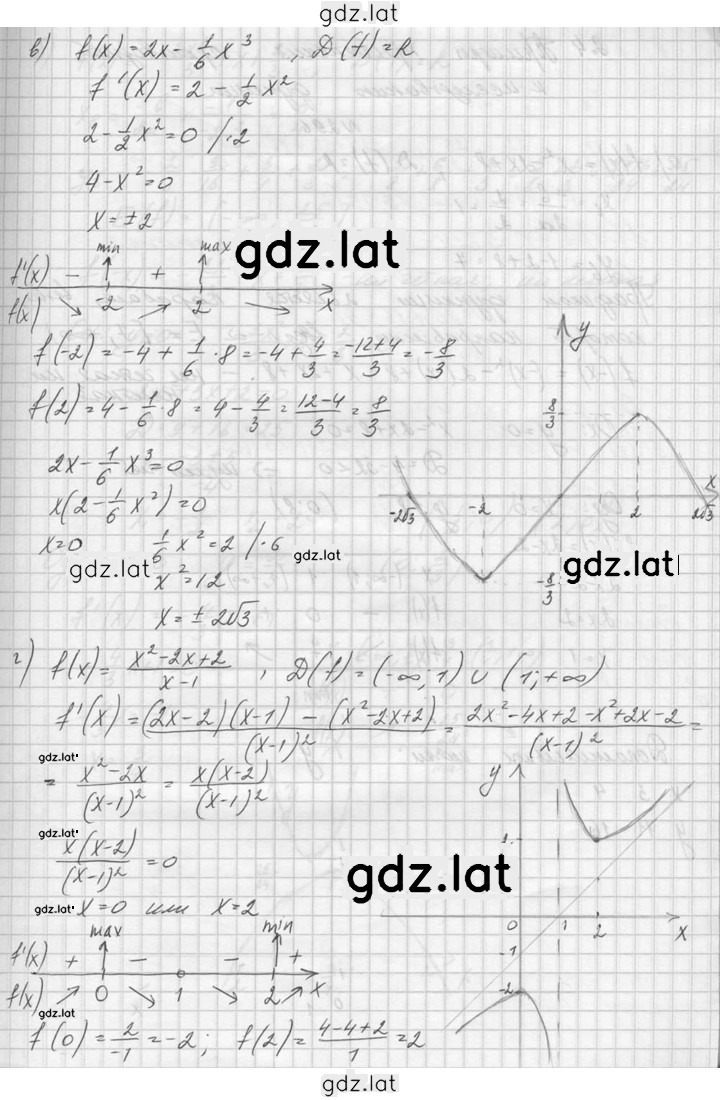 gdz.lat
в) f(x) = 2x - 1/6 x³ , D(f) = R
f'(x) = 2 - 1/2 x²
2 - 1/2 x² = 0 /·2
4 - x² = 0
x = ±2
gdz.lat
min max
f'(x) - +
f(x) -2 2 x
f(-2) = -4 + 1/6 · 8 = -4 + 4/3 = (-12+4)/3 = -8/3
f(2) = 4 - 1/6 · 8 = 4 - 4/3 = (12-4)/3 = 8/3
2x - 1/6 x³ = 0
x(2 - 1/6 x²) = 0
x = 0 1/6 x² = 2 /·6
gdz.lat
x² = 12
x = ± 2√3
y
8/3
x
-2√3 -2 2 2√3
gdz.lat
-8/3
г) f(x) = (x²-2x+2)/(x-1) , D(f) = (-∞; 1) ∪ (1; +∞)
f'(x) = ((2x-2)(x-1) - (x²-2x+2))/(x-1)² = (2x²-4x+2-x²+2x-2)/(x-1)² =
gdz.lat
= (x²-2x)/(x-1)² = x(x-2)/(x-1)²
gdz.lat
x(x-2)/(x-1)² = 0
gdz.lat
x = 0 или x = 2
max min
f'(x) + - - +
f(x) 0 1 2 x
gdz.lat
f(0) = 2/-1 = -2; f(2) = (4-4+2)/1 = 2
y
1
gdz.lat
0 1 2 x
-1
-2
gdz.lat